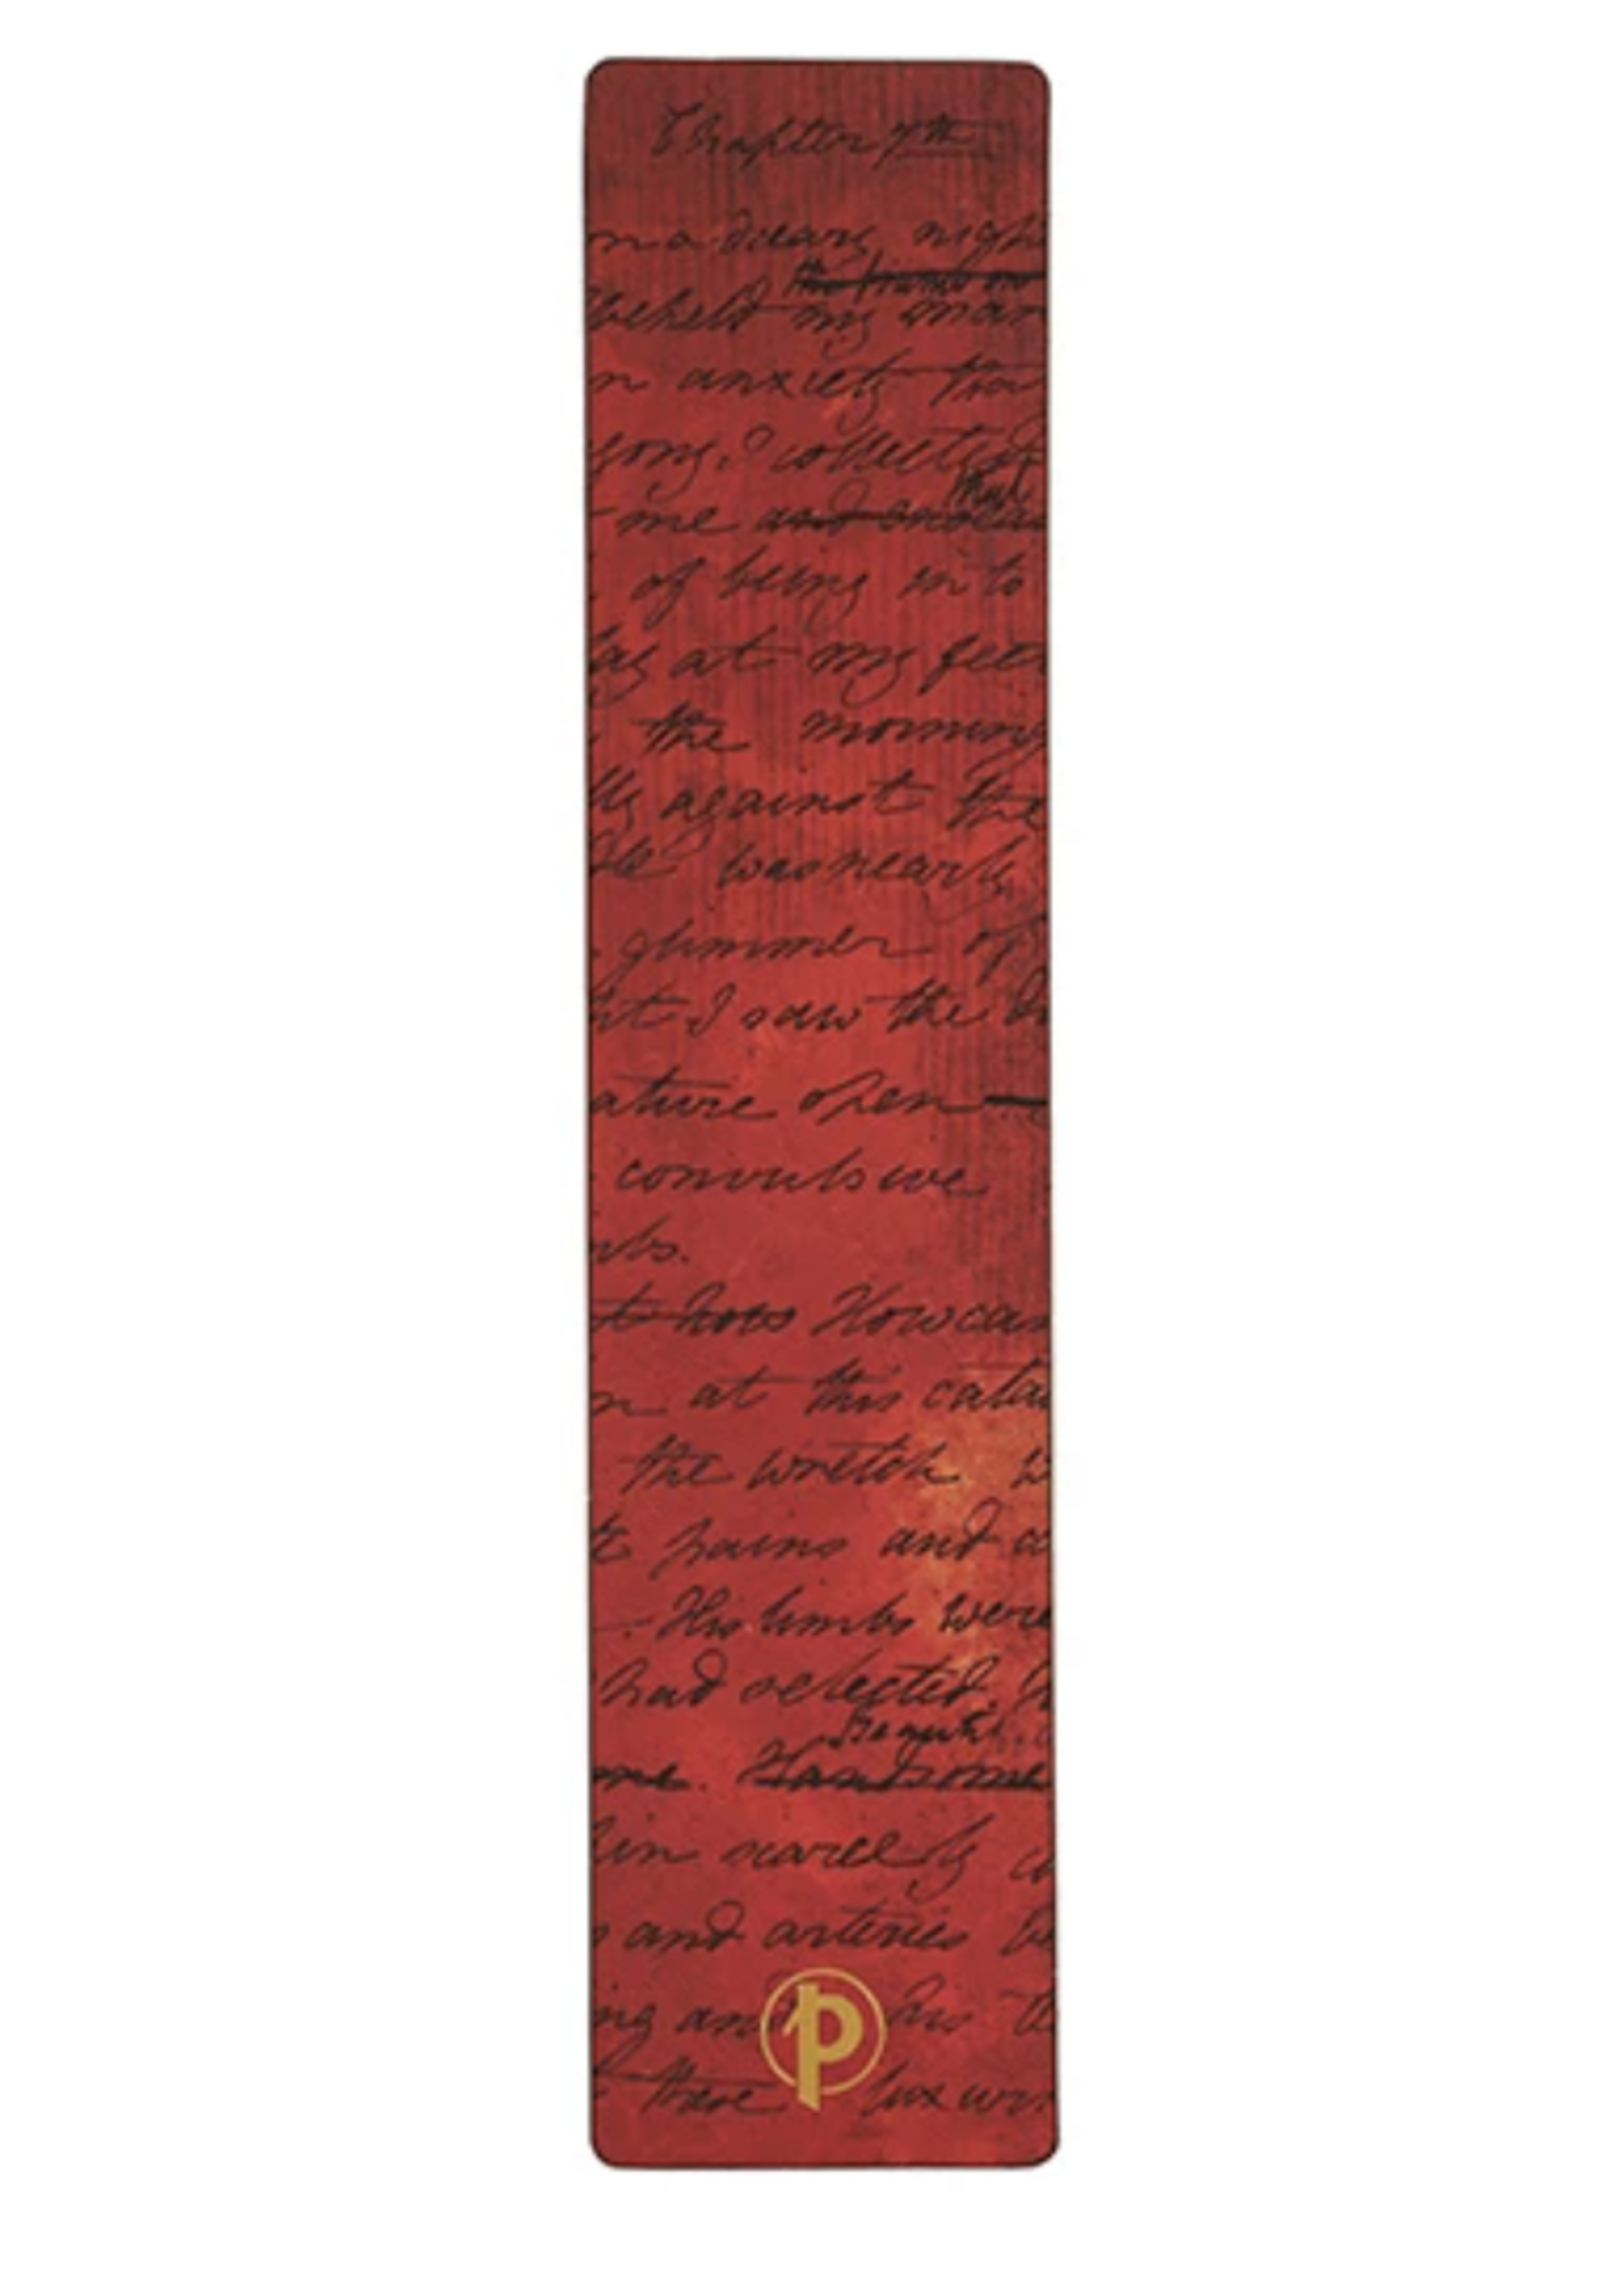 Chapter 7th
on a dreary nigh
beheld my man
n anxiety tha
gony, I collected
that
me and endea
of being into
lay at my feet
the morning
lly against the
dle was nearly
glimmer of
ht I saw the du
ature open
convulsive
mbs.
t how How can
n at this cata
the wretch w
te pains and ca
His limbs were
had selected h
Beautiful
me. Handsome
kin scarcely co
s and arteries be
ing and his te
these luxuri
P